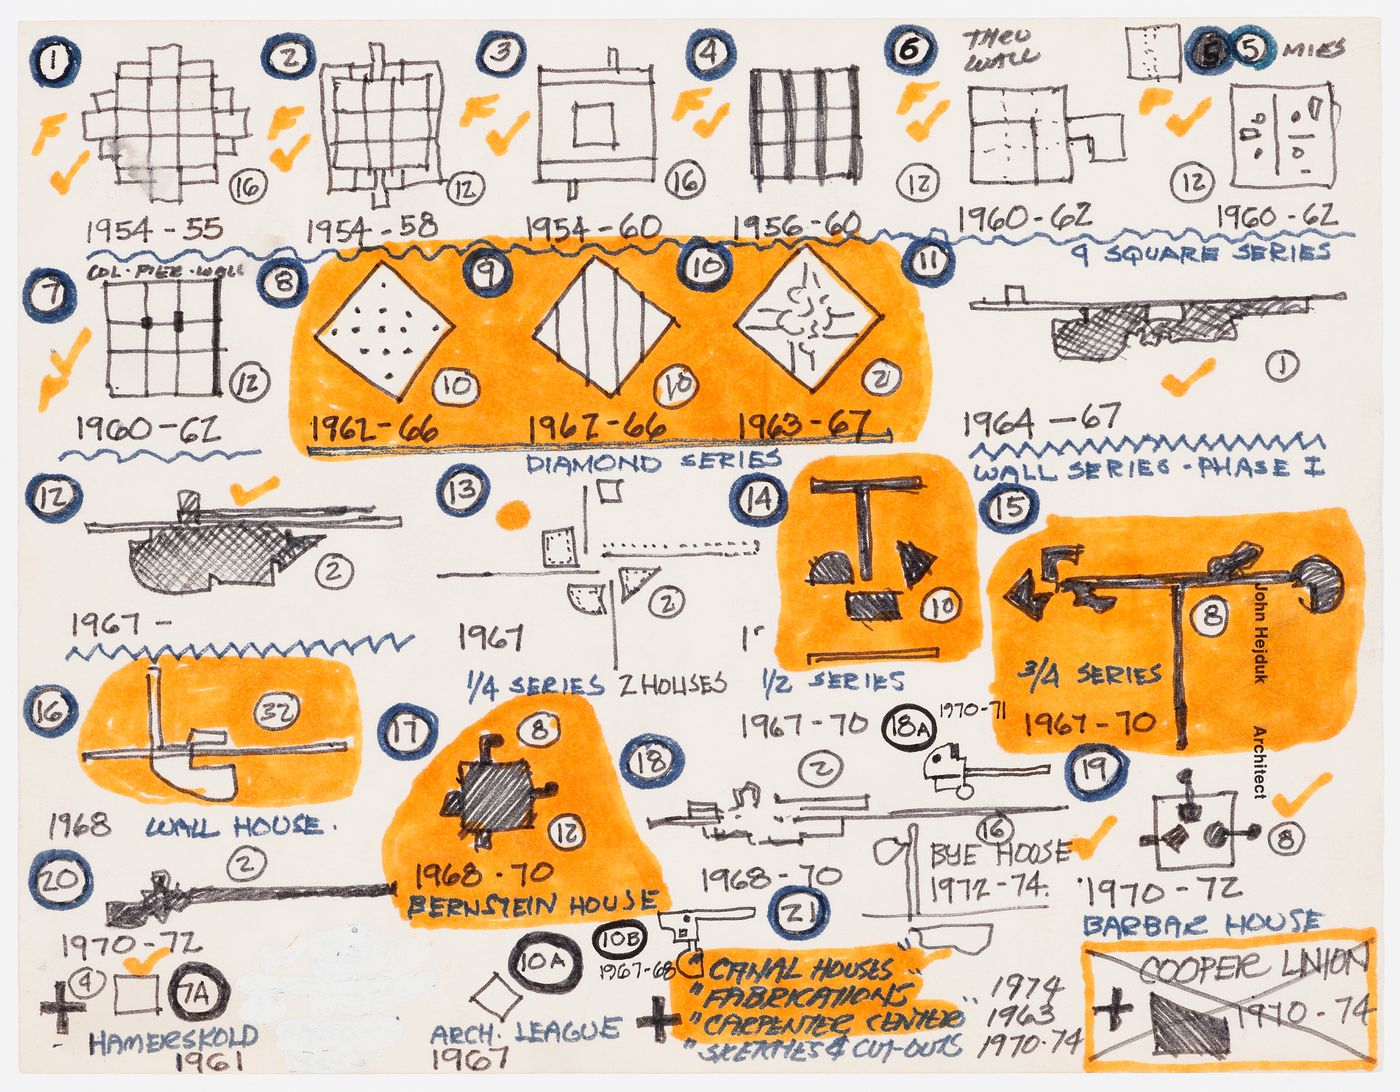 1
2
3
4
6
THRU
WALL
5
5
MIES
F
F
F
F
F
F
16
12
16
12
12
1954-55
1954-58
1954-60
1956-60
1960-62
1960-62
9 SQUARE SERIES
7
COL·PIER·WALL
8
9
10
11
12
10
10
2
1
1960-62
1962-66
1962-66
1963-67
1964-67
DIAMOND SERIES
WALL SERIES·PHASE I
12
13
14
15
2
2
10
8
1967-
1967
1/4 SERIES 2 HOUSES
1/2 SERIES
1967-70
3/4 SERIES
1967-70
John Hejduk Architect
16
32
17
8
12
18
2
18A
1970-71
19
8
1968
WALL HOUSE.
1968·70
BERNSTEIN HOUSE
1968-70
16
BYE HOUSE
1972-74.
1970-72
BARBAR HOUSE
20
2
1970-72
9
7A
HAMERSKOLD
1961
10A
ARCH. LEAGUE
1967
10B
1967-68
21
"CANAL HOUSES"
"FABRICATIONS
"CARPENTER CENTER
"SKETCHES & CUT-OUTS
1974
1963
1970·74
COOPER UNION
1970-74